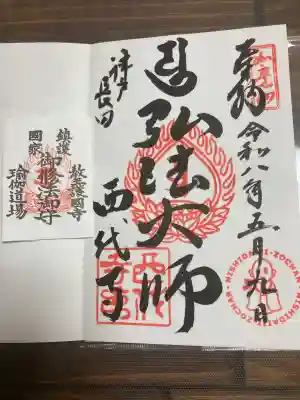 奉拝
令和八年五月九日
弘法大師
神戸長田
西代寺
NISHIDAI-ZOCHAN・NISHIDAI-ZOCHAN
鎮護国家
御修法御守
教王護国寺
瑜伽道場